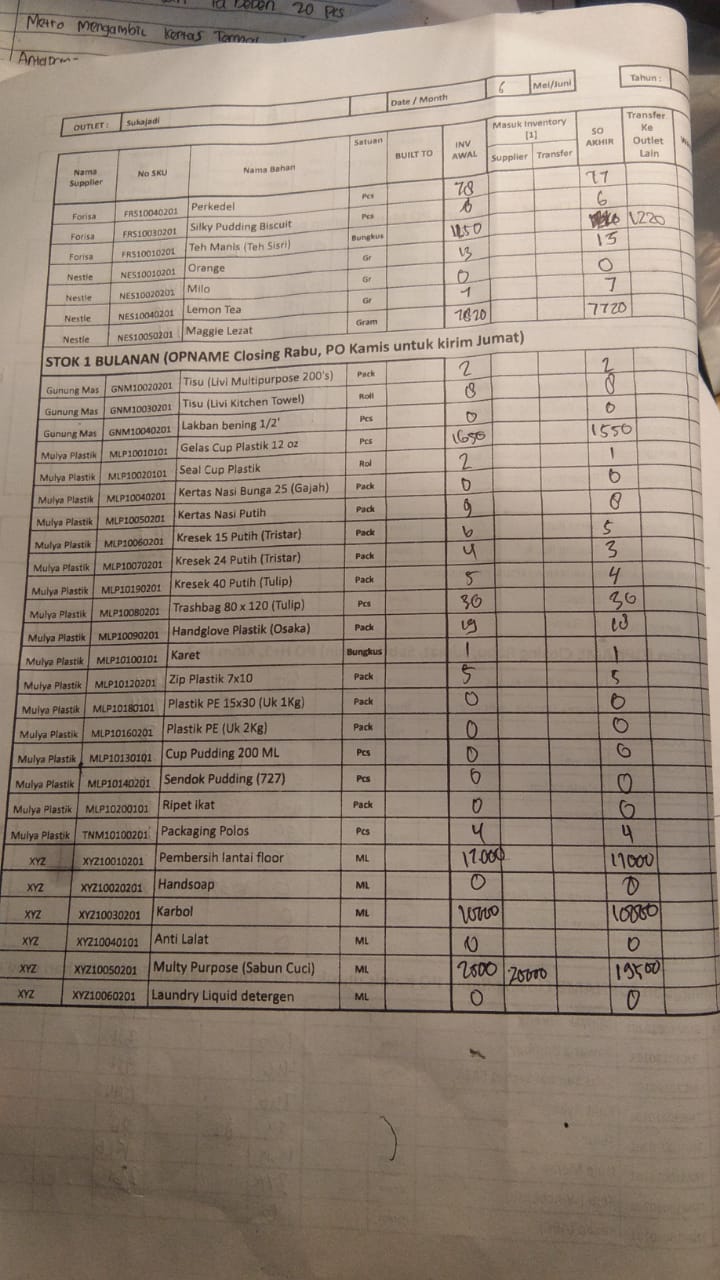 20 Pcs
Metro Mengambil Kertas
OUTLET : Sukajadi Date / Month 6 Mei/Juni Tahun :
Nama Supplier No SKU Nama Bahan Satuan BUILT TO INV AWAL Masuk Inventory [1] Supplier Transfer SO AKHIR Transfer Ke Outlet Lain
Perkedel Pcs 78 77
Forisa FRS10040201 Silky Pudding Biscuit Pcs 6
Forisa FRS10030201 Teh Manis (Teh Sisri) Bungkus 1220
Forisa FRS10010201 Orange Gr 13 13
Nestle NES10010201 Milo Gr 0 0
Nestle NES10020201 Lemon Tea Gr 7 7
Nestle NES10040201 Maggie Lezat Gram 7820 7720
Nestle NES10050201
STOK 1 BULANAN (OPNAME Closing Rabu, PO Kamis untuk kirim Jumat)
Gunung Mas GNM10020201 Tisu (Livi Multipurpose 200's) Pack 2 2
Gunung Mas GNM10030201 Tisu (Livi Kitchen Towel) Roll 8 8
Gunung Mas GNM10040201 Lakban bening 1/2' Pcs 0 0
Mulya Plastik MLP10010101 Gelas Cup Plastik 12 oz Pcs 1650 1550
Mulya Plastik MLP10020101 Seal Cup Plastik Rol 2 1
Mulya Plastik MLP10040201 Kertas Nasi Bunga 25 (Gajah) Pack 0 0
Mulya Plastik MLP10050201 Kertas Nasi Putih Pack 9 8
Mulya Plastik MLP10060201 Kresek 15 Putih (Tristar) Pack 6 5
Mulya Plastik MLP10070201 Kresek 24 Putih (Tristar) Pack 4 3
Mulya Plastik MLP10190201 Kresek 40 Putih (Tulip) Pack 5 4
Mulya Plastik MLP10080201 Trashbag 80 x 120 (Tulip) Pcs 36 36
Mulya Plastik MLP10090201 Handglove Plastik (Osaka) Pack 19 18
Mulya Plastik MLP10100101 Karet Bungkus 1 1
Mulya Plastik MLP10120201 Zip Plastik 7x10 Pack 5 5
Mulya Plastik MLP10180101 Plastik PE 15x30 (Uk 1Kg) Pack 0 0
Mulya Plastik MLP10160201 Plastik PE (Uk 2Kg) Pack 0 0
Mulya Plastik MLP10130101 Cup Pudding 200 ML Pcs 0 0
Mulya Plastik MLP10140201 Sendok Pudding (727) Pcs 0 0
Mulya Plastik MLP10200101 Ripet ikat Pack 0 0
Mulya Plastik TNM10100201 Packaging Polos Pcs 4 4
XYZ XYZ10010201 Pembersih lantai floor ML 17.000 17000
XYZ XYZ10020201 Handsoap ML 0 0
XYZ XYZ10030201 Karbol ML
XYZ XYZ10040101 Anti Lalat ML 0 0
XYZ XYZ10050201 Multy Purpose (Sabun Cuci) ML 2000 20000 19500
XYZ XYZ10060201 Laundry Liquid detergen ML 0 0